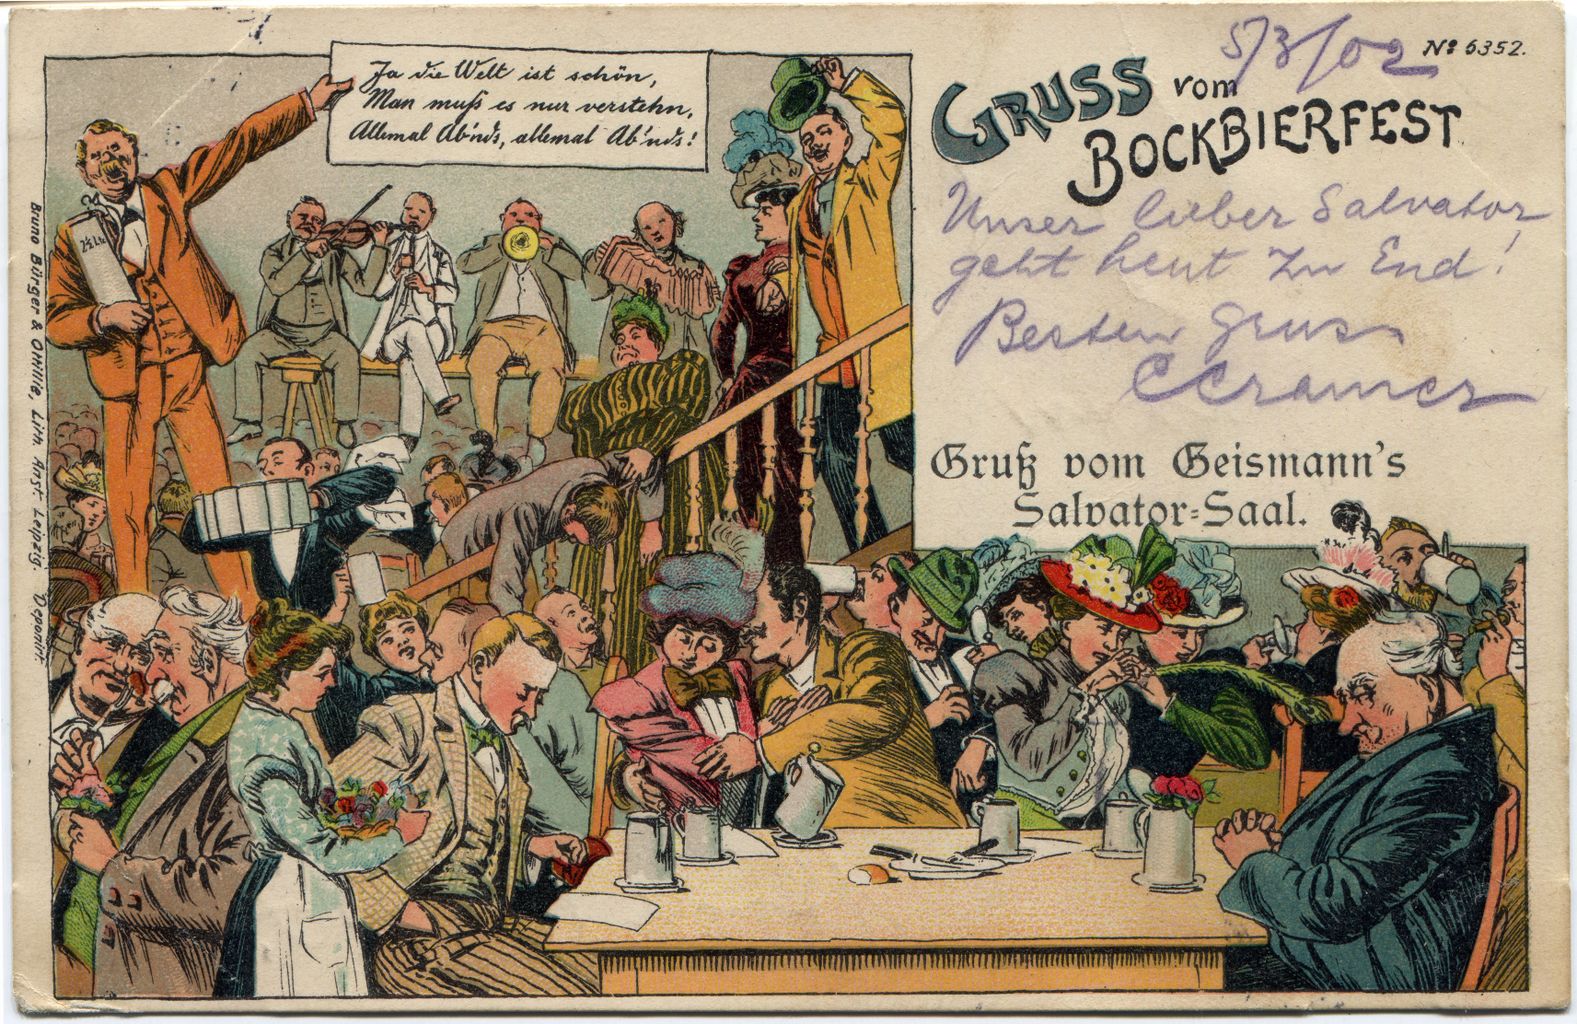 Ja die Welt ist schön,
Man muß es nur verstehn,
Allemal Ab'nds, allemal Ab'nds!
5/3/02
Nº 6352.
GRUSS vom
BOCKBIERFEST
Unser lieber Salvator
geht heut zu End!
Besten Gruss
CCramer
Gruß vom Geismann's
Salvator=Saal.
Bruno Bürger & Ottillie, Lith. Anst. Leipzig. Deponirt.
2½ Ltr